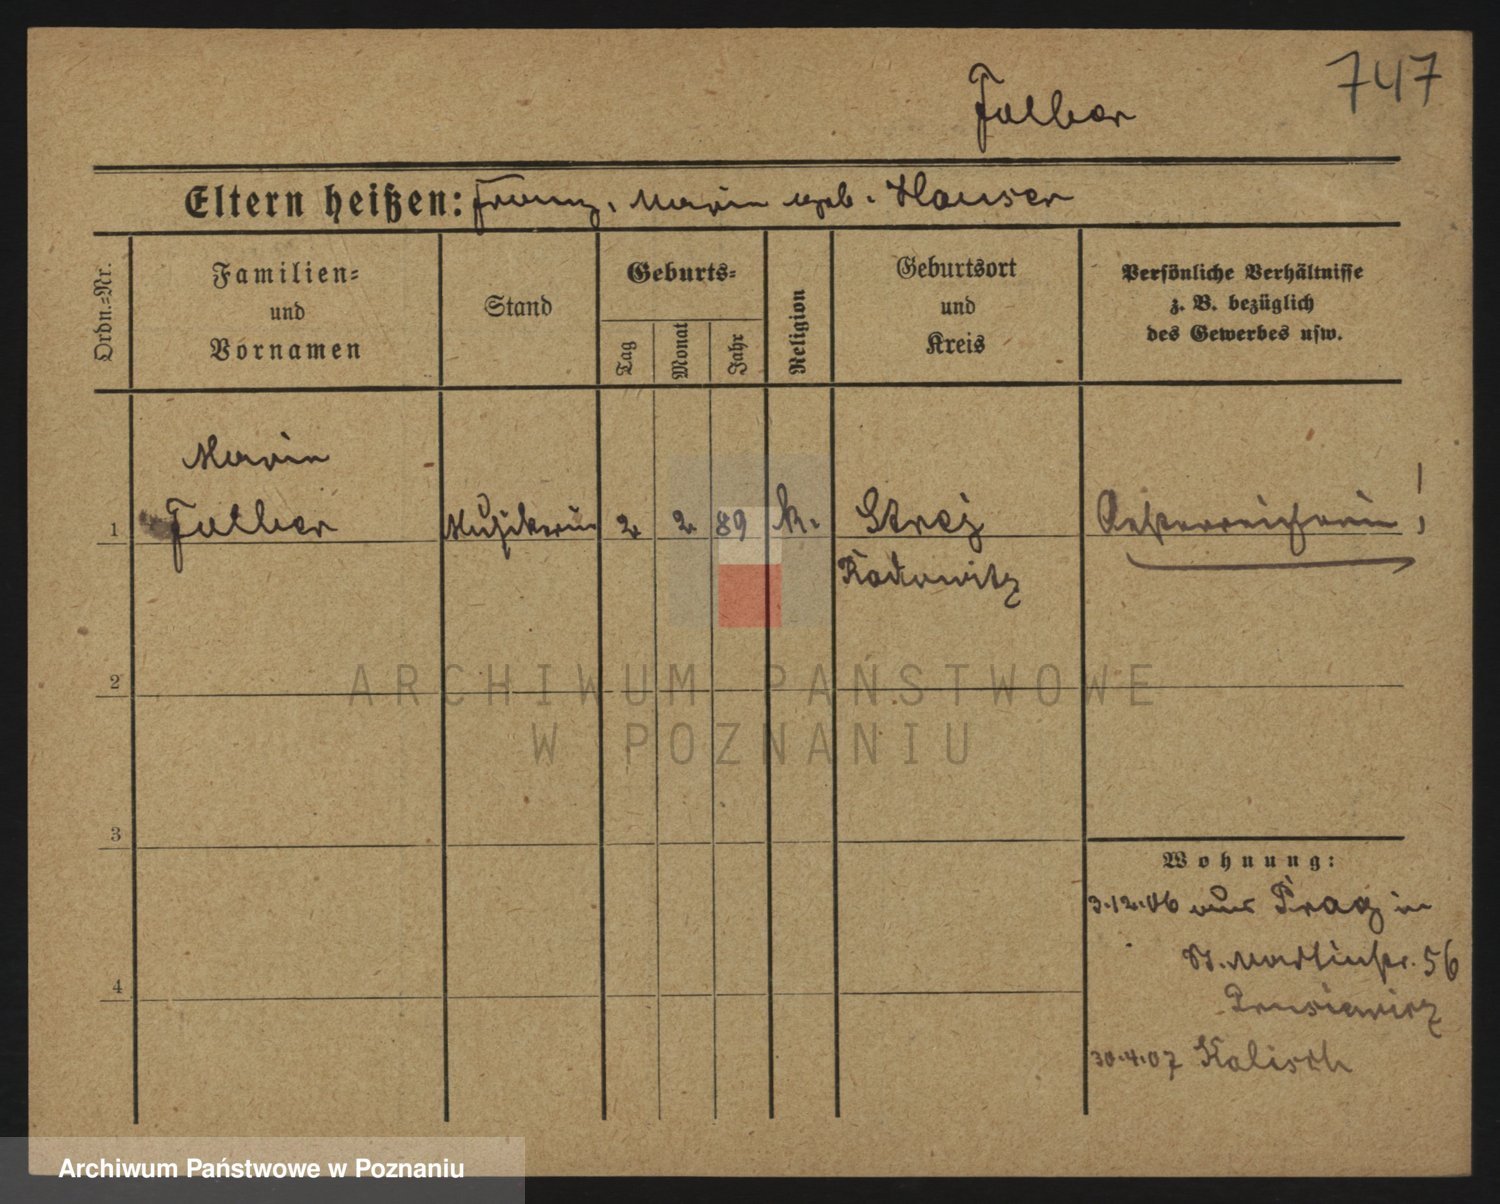 747
Falber
Eltern heißen: Franz, Marie geb. Hauser
Ordn.=Nr.
Familien=
und
Vornamen
Stand
Geburts=
Tag
Monat
Jahr
Religion
Geburtsort
und
Kreis
Persönliche Verhältnisse
z. B. bezüglich
des Gewerbes usw.
Marie
1 Falber Musikerin 2 2 89 k. Oesterreicherin!
2
3
4
Wohnung:
3.12.06 aus Prag in
St. Martinstr. 56
30.4.07 Kalisch
ARCHIWUM PAŃSTWOWE
W POZNANIU
Archiwum Państwowe w Poznaniu